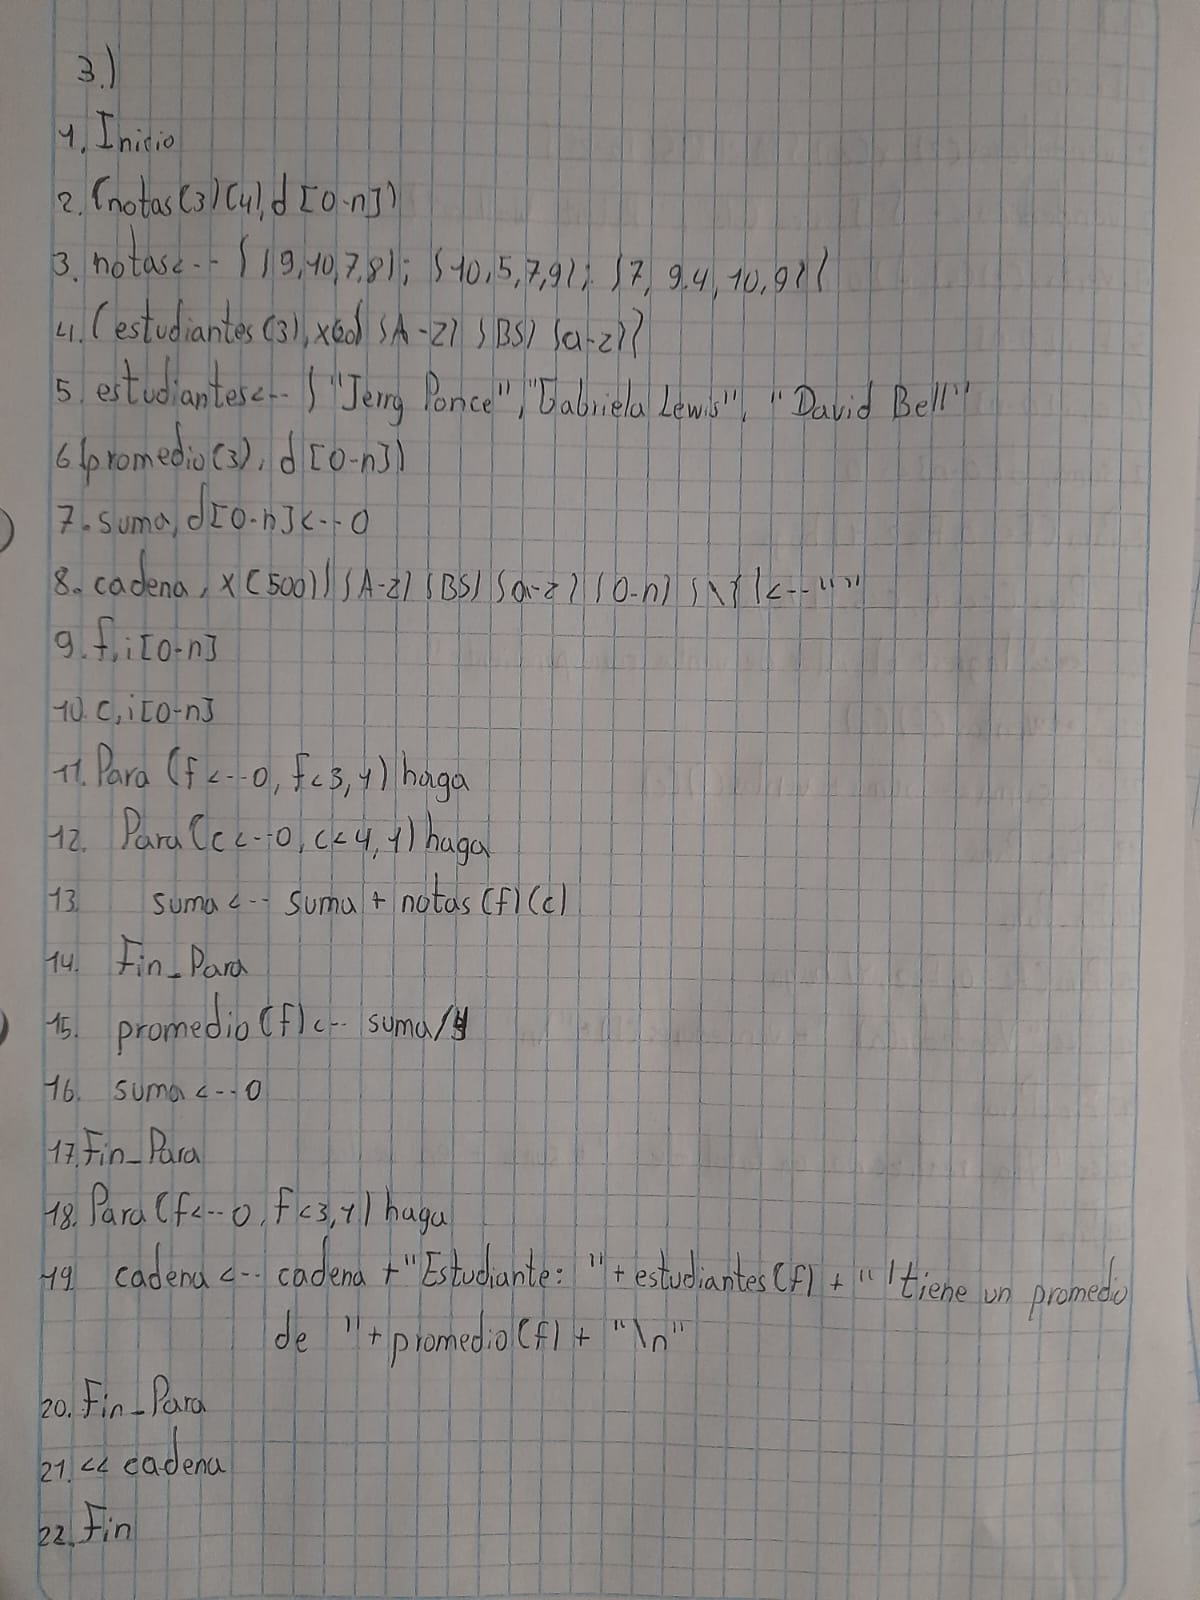 3.)
1. Inicio
2. (notas(3)(4), d[0-n])
3. notas<-- {{9,10,7,8}; {10,5,7,9}; {7, 9.4, 10,9}}
4. (estudiantes(3), x(60) {A-Z} {BS} {a-z}}
5. estudiantes<-- { "Jerry Ponce", "Gabriela Lewis", "David Bell"
6 (promedio(3), d[0-n])
7. suma, d[0-n]<--0
8. cadena, x(500){ {A-Z} {BS} {a-z} {0-n} {\} }<--" "
9. f, i[0-n]
10. c, i[0-n]
11. Para (f<--0, f<3, 1) haga
12. Para (c<--0, c<4, 1) haga
13. suma <-- suma + notas(f)(c)
14. Fin_Para
15. promedio(f)<-- suma/4
16. suma <--0
17. Fin_Para
18. Para (f<--0, f<3, 1) haga
19 cadena <-- cadena + "Estudiante: " + estudiantes(f) + " tiene un promedio
de " + promedio(f) + "\n"
20. Fin_Para
21. << cadena
22. Fin